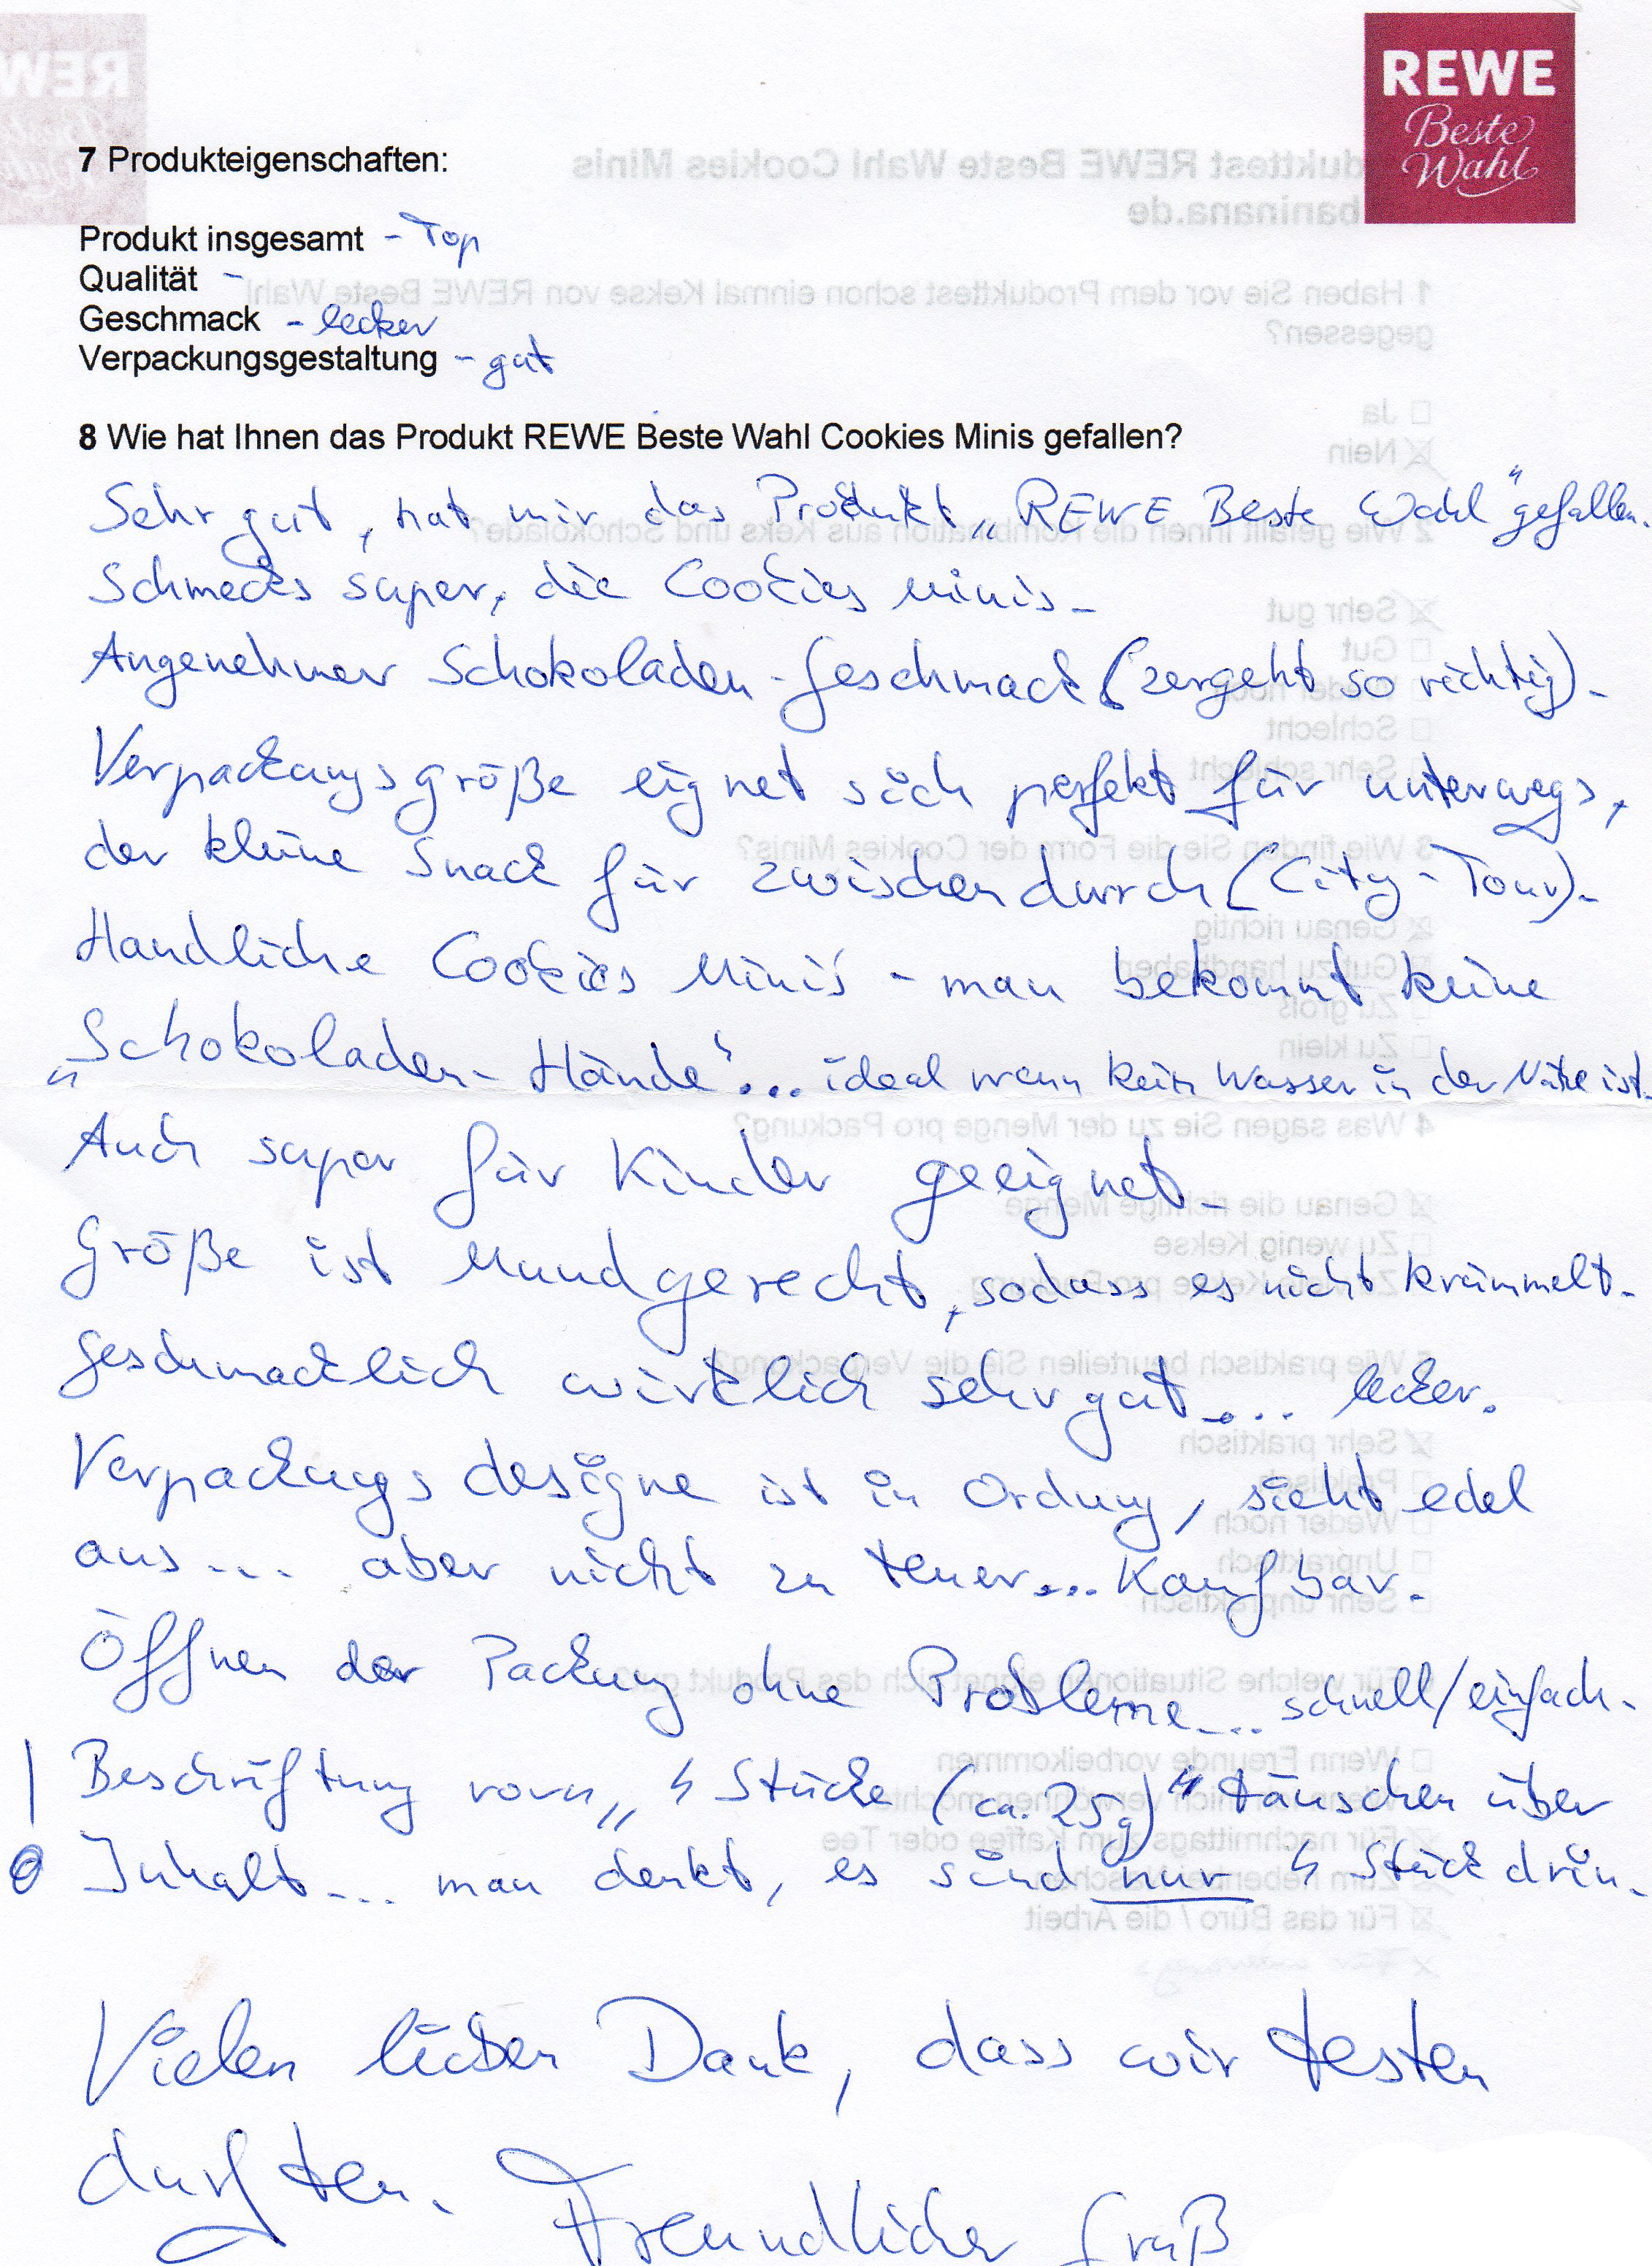 REWE
Beste
Wahl
7 Produkteigenschaften:
Produkt insgesamt - Top
Qualität -
Geschmack - lecker
Verpackungsgestaltung - gut
8 Wie hat Ihnen das Produkt REWE Beste Wahl Cookies Minis gefallen?
Sehr gut, hat mir das Produkt „REWE Beste Wahl" gefallen.
Schmeckt super, die Cookies Minis.
Angenehmer Schokoladen-Geschmack (zergeht so richtig).
Verpackungsgröße eignet sich perfekt für unterwegs,
der kleine Snack für zwischendurch (City-Tour).
Handliche Cookies Minis - man bekommt keine
„Schokoladen-Hände"... ideal wenn kein Wasser in der Nähe ist.
Auch super für Kinder geeignet.
Größe ist Mundgerecht, sodass es nicht krümmelt.
Geschmacklich wirklich sehr gut.... lecker.
Verpackungsdesigne ist in Ordnung, sieht edel
aus... aber nicht zu teuer... Kaufbar.
Öffnen der Packung ohne Probleme... schnell/einfach.
Beschriftung vorn „ 4 Stücke (ca. 25g)" täuschen über
Inhalt... man denkt, es sind nur 4 Stück drin.
Vielen lieben Dank, dass wir testen
durften. Freundlicher Gruß